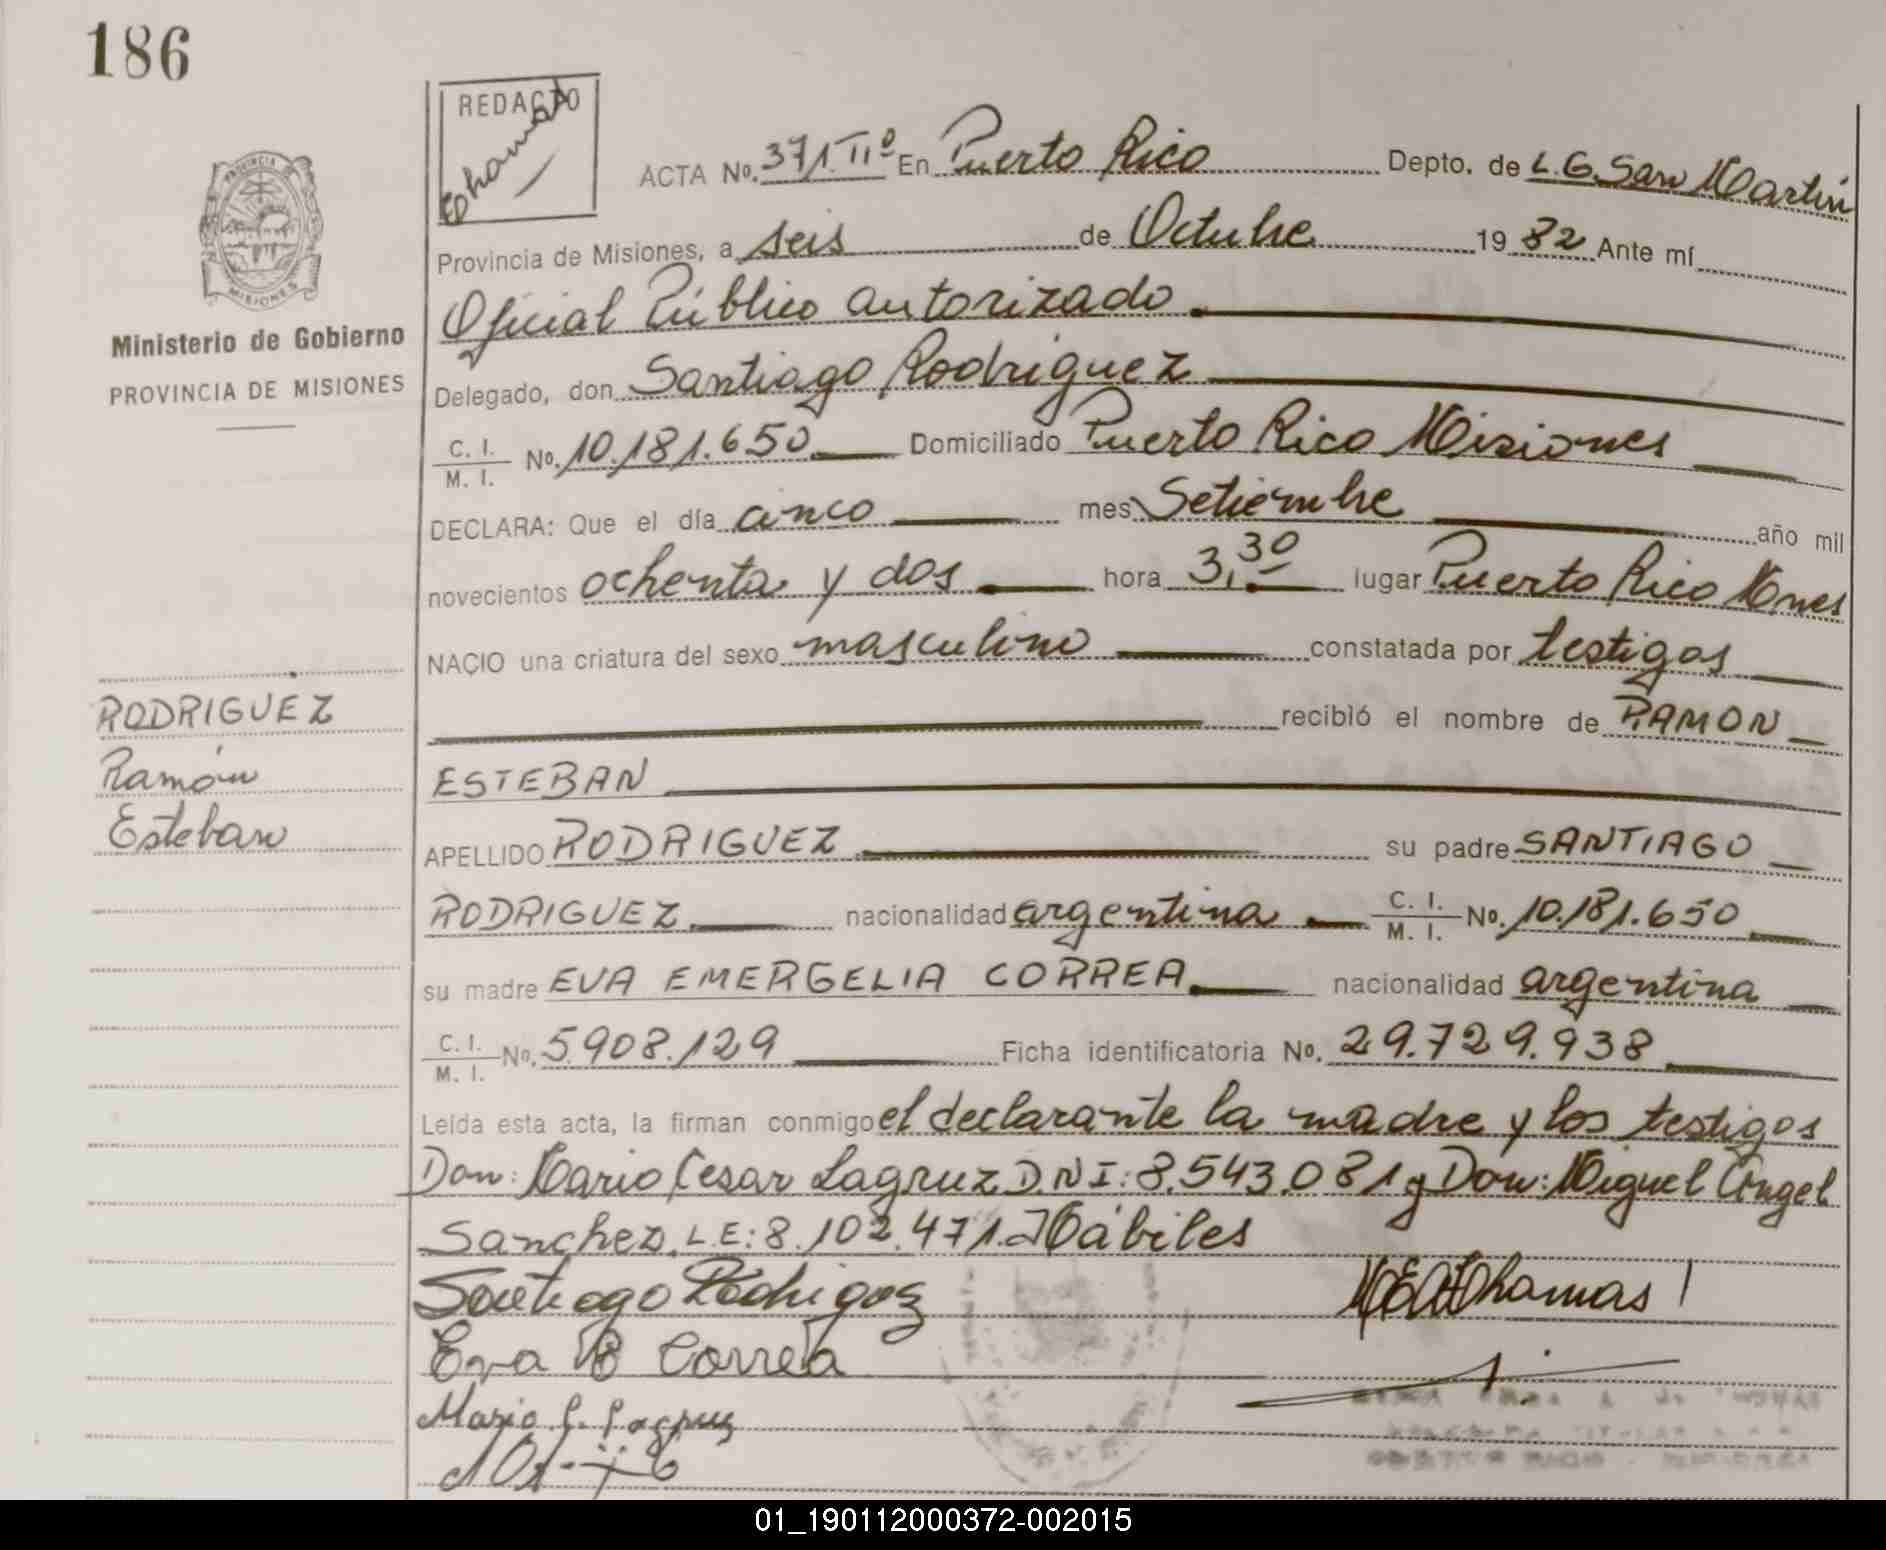 186
REDACTO
PROVINCIA DE
MISIONES
Ministerio de Gobierno
PROVINCIA DE MISIONES
RODRIGUEZ
Ramón
Esteban
ACTA No. 371. IIº En Puerto Rico Depto. de L.G. San Martín
Provincia de Misiones, a seis de Octubre 19 82 Ante mí
Oficial Público autorizado
Delegado, don Santiago Rodriguez
C. I. / M. I. No. 10.181.650 Domiciliado Puerto Rico Misiones
DECLARA: Que el día cinco mes Setiembre año mil
novecientos ochenta y dos hora 3,30 lugar Puerto Rico Mnes
NACIO una criatura del sexo masculino constatada por testigos
recibió el nombre de RAMON
ESTEBAN
APELLIDO RODRIGUEZ su padre SANTIAGO
RODRIGUEZ nacionalidad argentina C. I. / M. I. No. 10.181.650
su madre EVA EMERGELIA CORREA nacionalidad argentina
C. I. / M. I. No. 5.908.129 Ficha identificatoria No. 29.729.938
Leída esta acta, la firman conmigo el declarante la madre y los testigos
Don: Mario Cesar Lagruz D.N.I: 8.543.081 y Don: Miguel Angel
Sanchez. L.E: 8.102.471. Hábiles
Santiago Rodrigez
Eva E Correa
Mario C. Lagruz
01_190112000372-002015